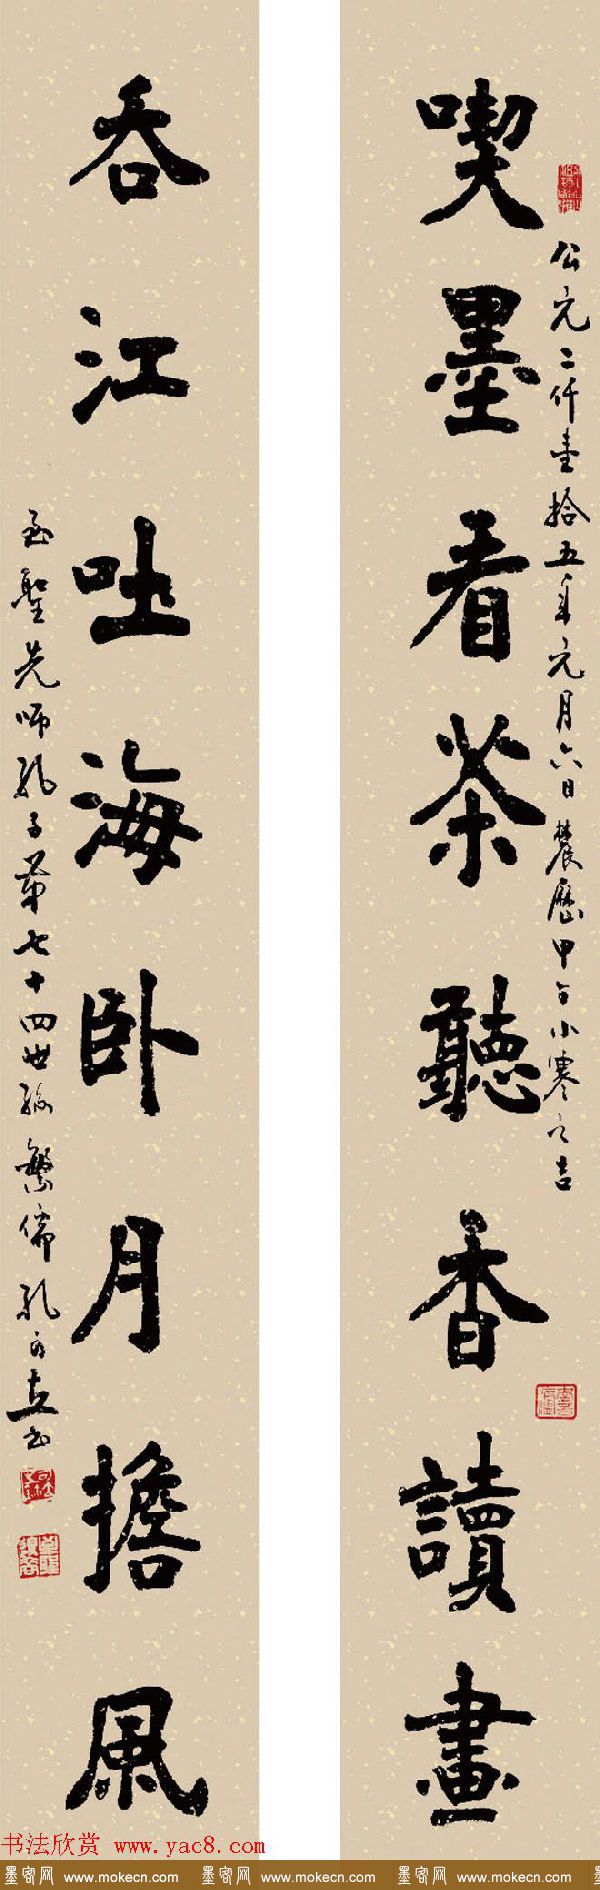 喫墨看茶聽香讀畫
公元二仟壹拾五年元月六日農歷甲午小寒之吉
吞江吐海卧月擔風
至聖先師孔子第七十四世孫繁儒孔可立书
书法欣赏 www.yac8.com
墨客网 www.mokecn.com 墨客网 www.mokecn.com 墨客网 www.mokecn.com 墨客网 www.mokecn.com